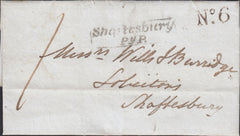 Shaftesbury
P.Y.P.
No. 6
1
Messrs Wills & Burridge
Solicitors
Shaftesbury